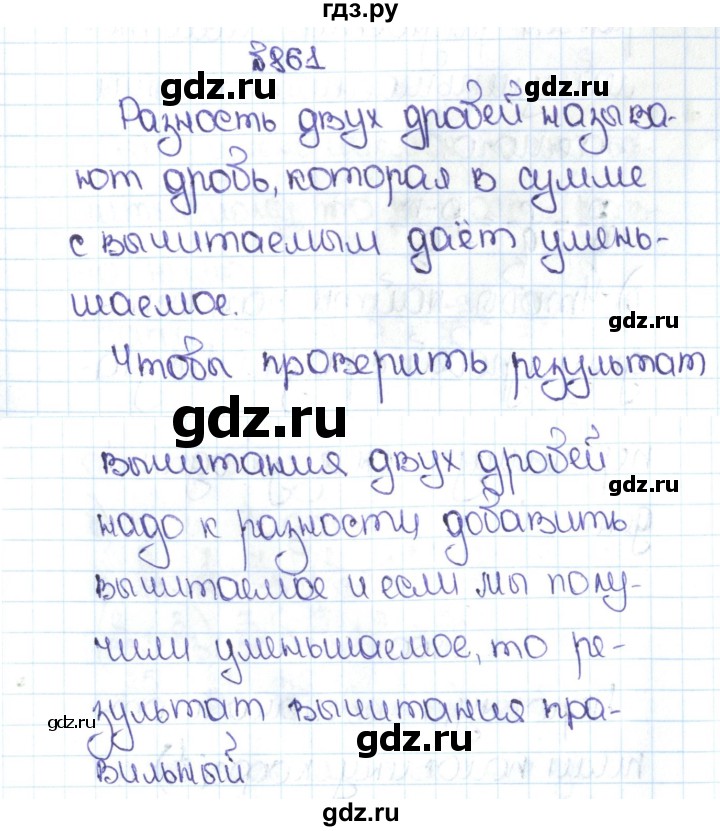 гдз.ру
№861
gdz.ru
gdz.ru
Разность двух дробей называ-
ют дробь, которая в сумме
с вычитаемым даёт умень-
шаемое.
gdz.ru
Чтобы проверить результат
gdz.ru
вычитания двух дробей
gdz.ru
надо к разности добавить
вычитаемое и если мы полу-
чили уменьшаемое, то ре-
зультат вычитания пра-
gdz.ru
gdz.ru
вильный
gdz.ru